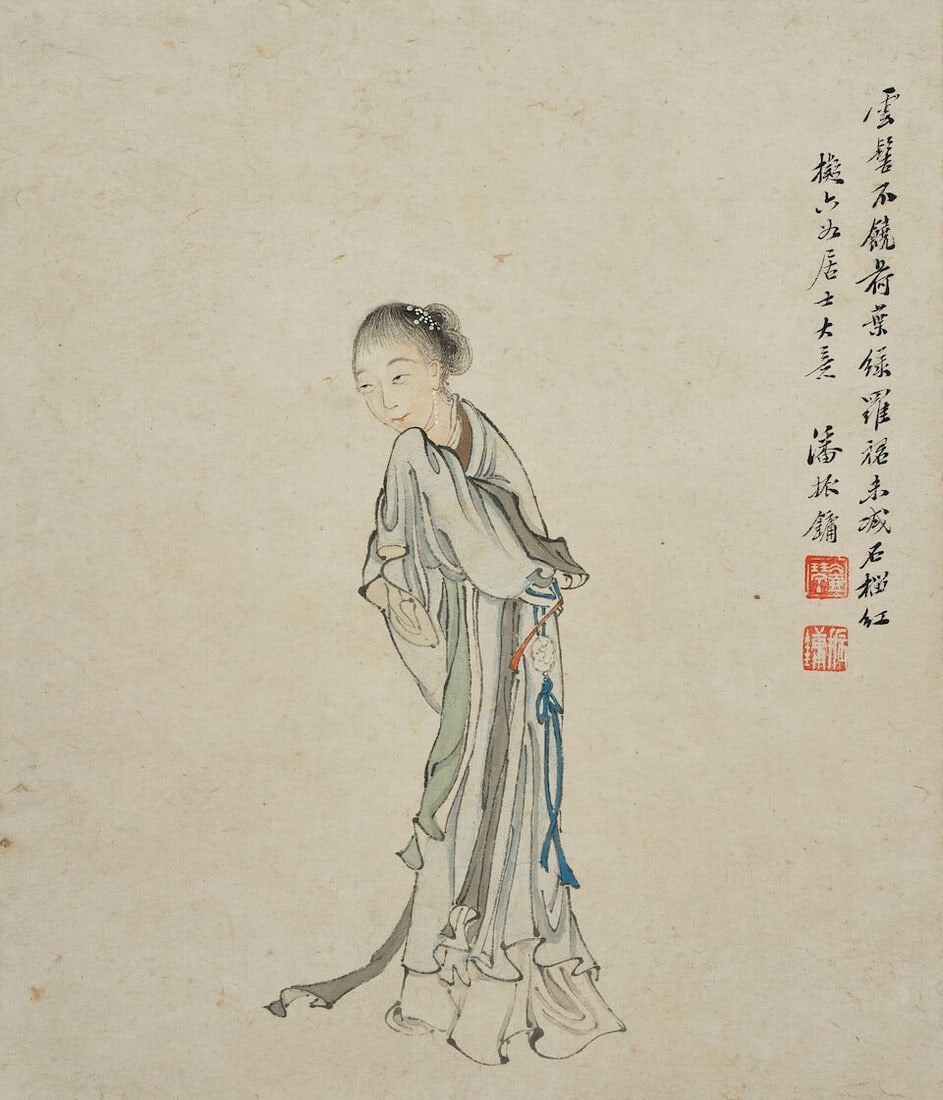 雲髻不饒荷葉綠羅裙未減石榴紅
擬六如居士大意
潘振鏞
振鏞